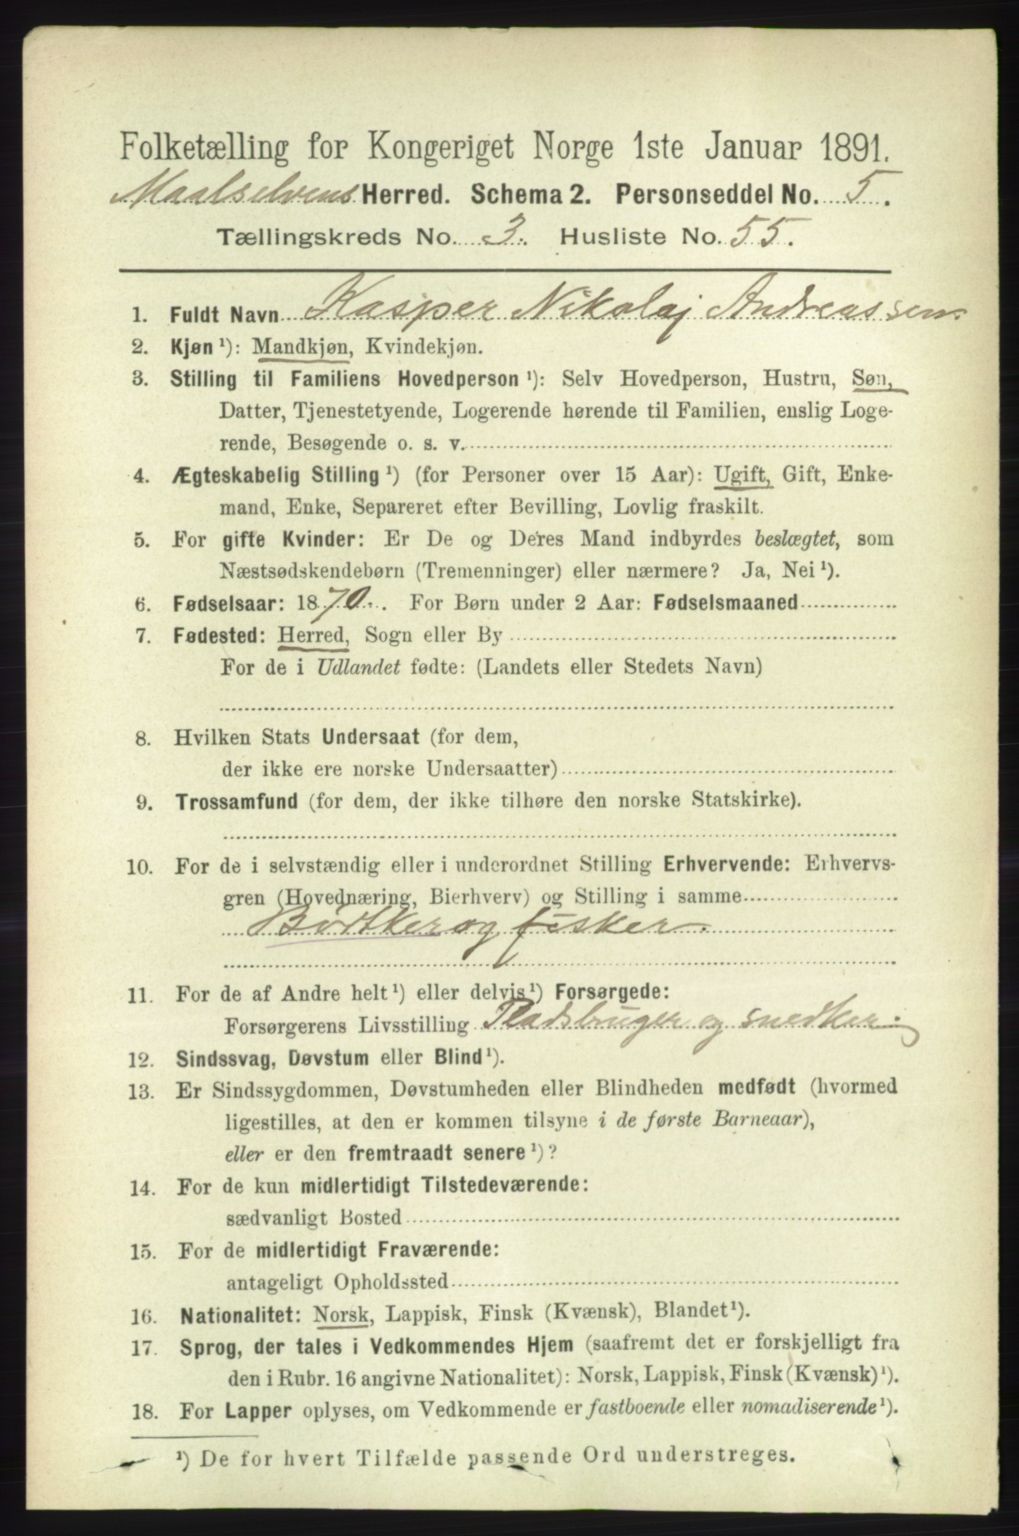 Folketælling for Kongeriget Norge 1ste Januar 1891.
Maalselvens Herred. Schema 2. Personseddel No. 5.
Tællingskreds No. 3. Husliste No. 55.
1. Fuldt Navn Kasper Nikolaj Andreassen
2. Kjøn ¹): Mandkjøn, Kvindekjøn.
3. Stilling til Familiens Hovedperson ¹): Selv Hovedperson, Hustru, Søn,
Datter, Tjenestetyende, Logerende hørende til Familien, enslig Loge-
rende, Besøgende o. s. v.
4. Ægteskabelig Stilling ¹) (for Personer over 15 Aar): Ugift, Gift, Enke-
mand, Enke, Separeret efter Bevilling, Lovlig fraskilt.
5. For gifte Kvinder: Er De og Deres Mand indbyrdes beslægtet, som
Næstsødskendebørn (Tremenninger) eller nærmere? Ja, Nei ¹).
6. Fødselsaar: 1870. For Børn under 2 Aar: Fødselsmaaned
7. Fødested: Herred, Sogn eller By
For de i Udlandet fødte: (Landets eller Stedets Navn)
8. Hvilken Stats Undersaat (for dem,
der ikke ere norske Undersaatter)
9. Trossamfund (for dem, der ikke tilhøre den norske Statskirke).
10. For de i selvstændig eller i underordnet Stilling Erhvervende: Erhvervs-
gren (Hovednæring, Bierhverv) og Stilling i samme
Bødtker og fisker.
11. For de af Andre helt ¹) eller delvis ¹) Forsørgede:
Forsørgerens Livsstilling Pladsbruger og snedker.
12. Sindssvag, Døvstum eller Blind ¹).
13. Er Sindssygdommen, Døvstumheden eller Blindheden medfødt (hvormed
ligestilles, at den er kommen tilsyne i de første Barneaar),
eller er den fremtraadt senere ¹)?
14. For de kun midlertidigt Tilstedeværende:
sædvanligt Bosted
15. For de midlertidigt Fraværende:
antageligt Opholdssted
16. Nationalitet: Norsk, Lappisk, Finsk (Kvænsk), Blandet ¹).
17. Sprog, der tales i Vedkommendes Hjem (saafremt det er forskjelligt fra
den i Rubr. 16 angivne Nationalitet): Norsk, Lappisk, Finsk (Kvænsk) ¹).
18. For Lapper oplyses, om Vedkommende er fastboende eller nomadiserende ¹).
¹) De for hvert Tilfælde passende Ord understreges.